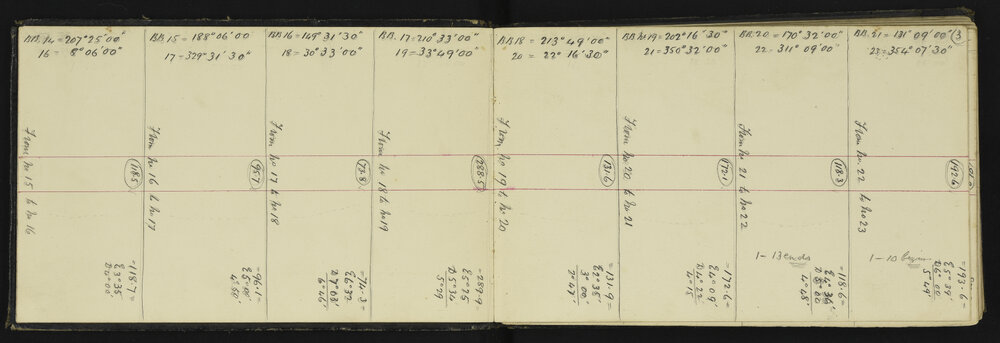 BB. 14 = 207° 25' 00"
16 = 8° 06' 00"
From No 15 to No 16
118.5
= 118.7 =
E 3° 35'
BB. 15 = 188° 06' 00
17 = 329° 31' 30"
From No 16 to No 17
95.7
= 96.1 =
E 5° 00'
4° 50'
BB 16 = 149° 31' 30"
18 = 30° 33' 00"
From No 17 to No 18
73.8
= 74.3 =
E 6° 32'
D 7° 03'
6° 46'
BB. 17 = 210° 33' 00"
19 = 33° 49' 00"
From No 18 to No 19
288.5
= 289.9
E 5° 25
D 5° 34
5° 29
BB 18 = 213° 49' 00"
20 = 22° 16' 30"
From No. 19 to No. 20
131.6
= 131.9 =
E 2° 35'
3° 00'
2° 47'
BB No 19 = 202° 16' 30"
21 = 350° 32' 00"
From No. 20 to No 21
172.1
= 172.6 =
E 4° 09'
D 4° 22'
4° 15
BB. 20 = 170° 32' 00"
22 = 311° 09' 00"
From No 21 to No 22
118.3
1 - 13 ends
= 118.6 =
E 4° 36'
D 5° 00
4° 48'
BB. 21 = 131° 09' 00"
3
23 = 354° 07' 30"
From No. 22 to No 23
192.6
1 - 10 begins
= 193.6 =
E 5° 39'
D 6° 00
5° 49'